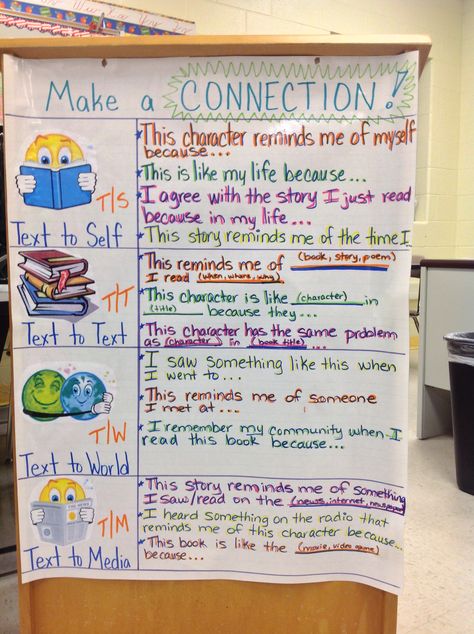 Make a CONNECTION!
T/S
Text to Self
This character reminds me of myself
because...
This is like my life because...
I agree with the story I just read
because in my life...
This story reminds me of the time I
T/T
Text to Text
This reminds me of (book, story, poem)
I read (when, where, why)
This character is like (character) in
(title) because they...
This character has the same problem
as (character) in (book title)...
T/W
Text to World
I saw something like this when
I went to...
This reminds me of someone
I met at...
I remember my community when I
read this book because...
T/M
Text to Media
This story reminds me of something
I saw/read on the (news, internet, newspaper)
I heard something on the radio that
reminds me of this character because...
This book is like the (movie, video game)
because...